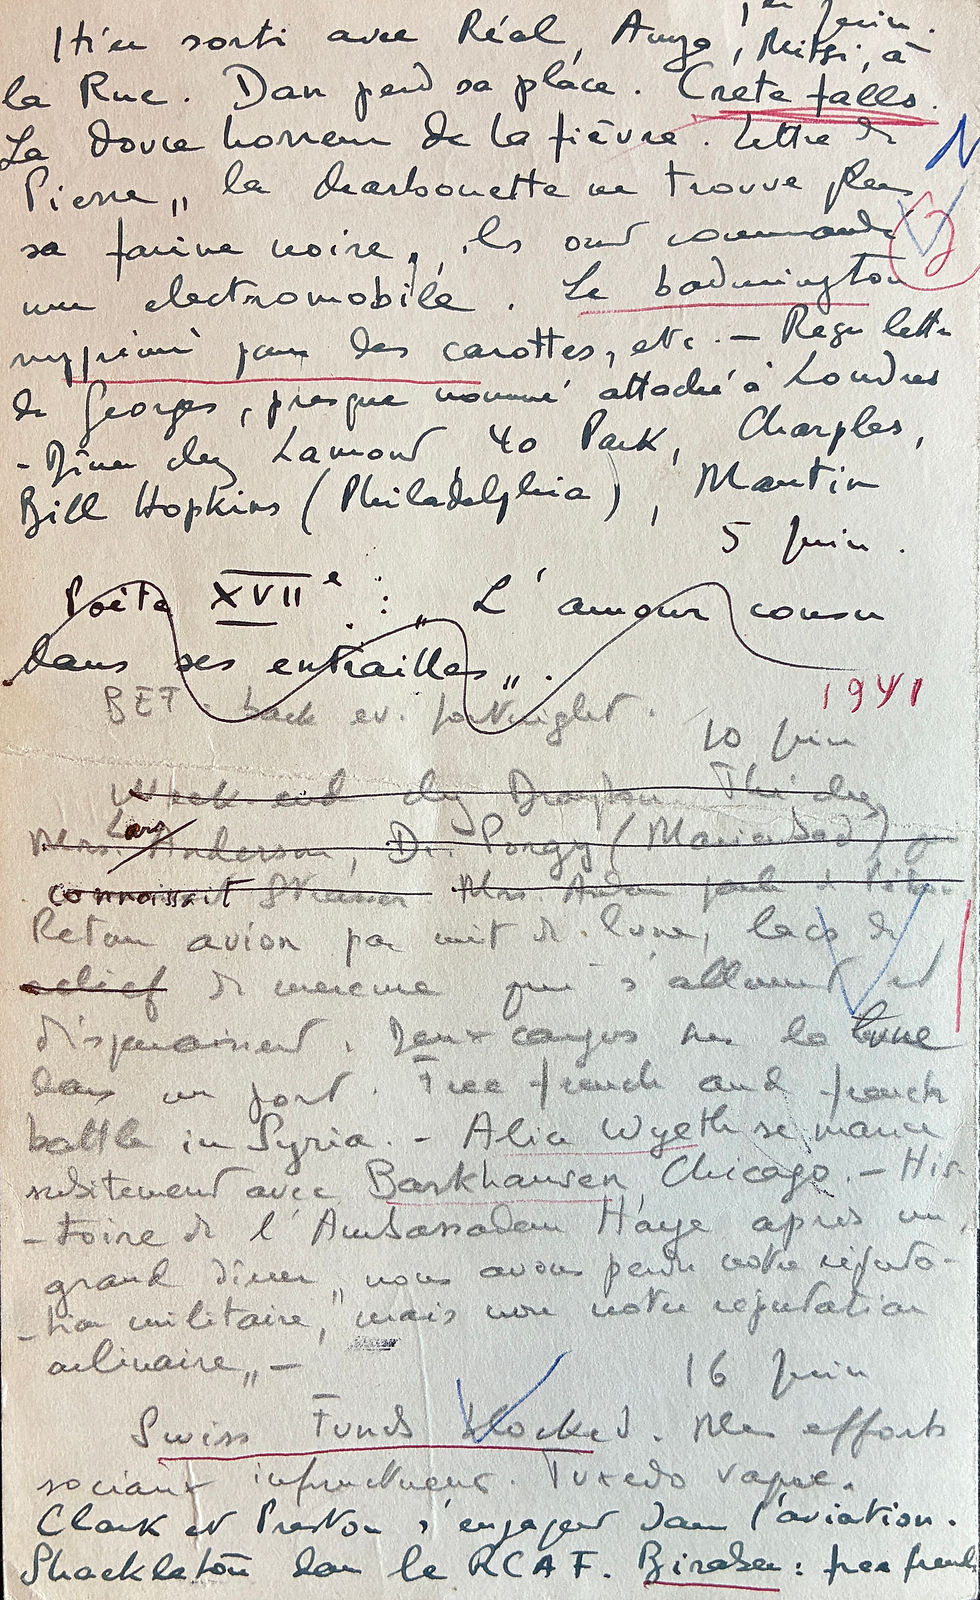 1er juin.
Hier sorti avec Réal, Ango, Mitsi, à
la Rue. Dan perd sa place. Crete falls.
La douce horreur de la fièvre. Lettre de
Pierre „ la charbonette ne trouve plus
sa farine noire, ils ont commandé
une electromobile. Le badmington
supprimé pour des carottes, etc. — Reçu lettre
de Georges, presque nommé attaché à Londres
- Dîner chez Lamond 40 Park, Charples,
Bill Hopkins (Philadelphia), Martin
5 juin.
Poète XVIIe : „ L'amour cousu
dans ses entrailles „.
1941
BET. back ev. fortnight.
10 juin
Week-end chez Drayton. Thé chez
Mrs. Lars Anderson, Dr. Porgy (Marienbad) q
connaissait Mrs.
Retour avion par nuit de lune, lacs de
relief de mercure qui s'allument et
disparaissent. Deux canges sur la lune
dans un port. Free french and french
battle in Syria. - Alice Wyeth se marie
subitement avec Barkhausen, Chicago. - His-
-toire de l'Ambassadeur Haye après un
grand dîner „ nous avons perdu notre réputa-
-tion militaire, mais non notre réputation
culinaire „ —
16 juin
Swiss Funds blocked. Mes efforts
sociaux infructueux. Tuxedo vague.
Clark et Preston s'engagent dans l'aviation.
Shackleton dans le RCAF. Biraben : free french